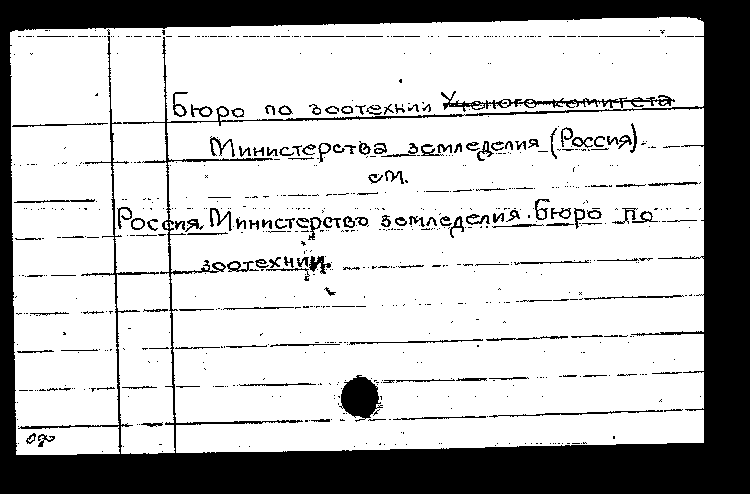 Бюро по зоотехнии Ученого комитета
Министерства земледелия (Россия).
см.
Россия. Министерство земледелия. Бюро по
зоотехнии.